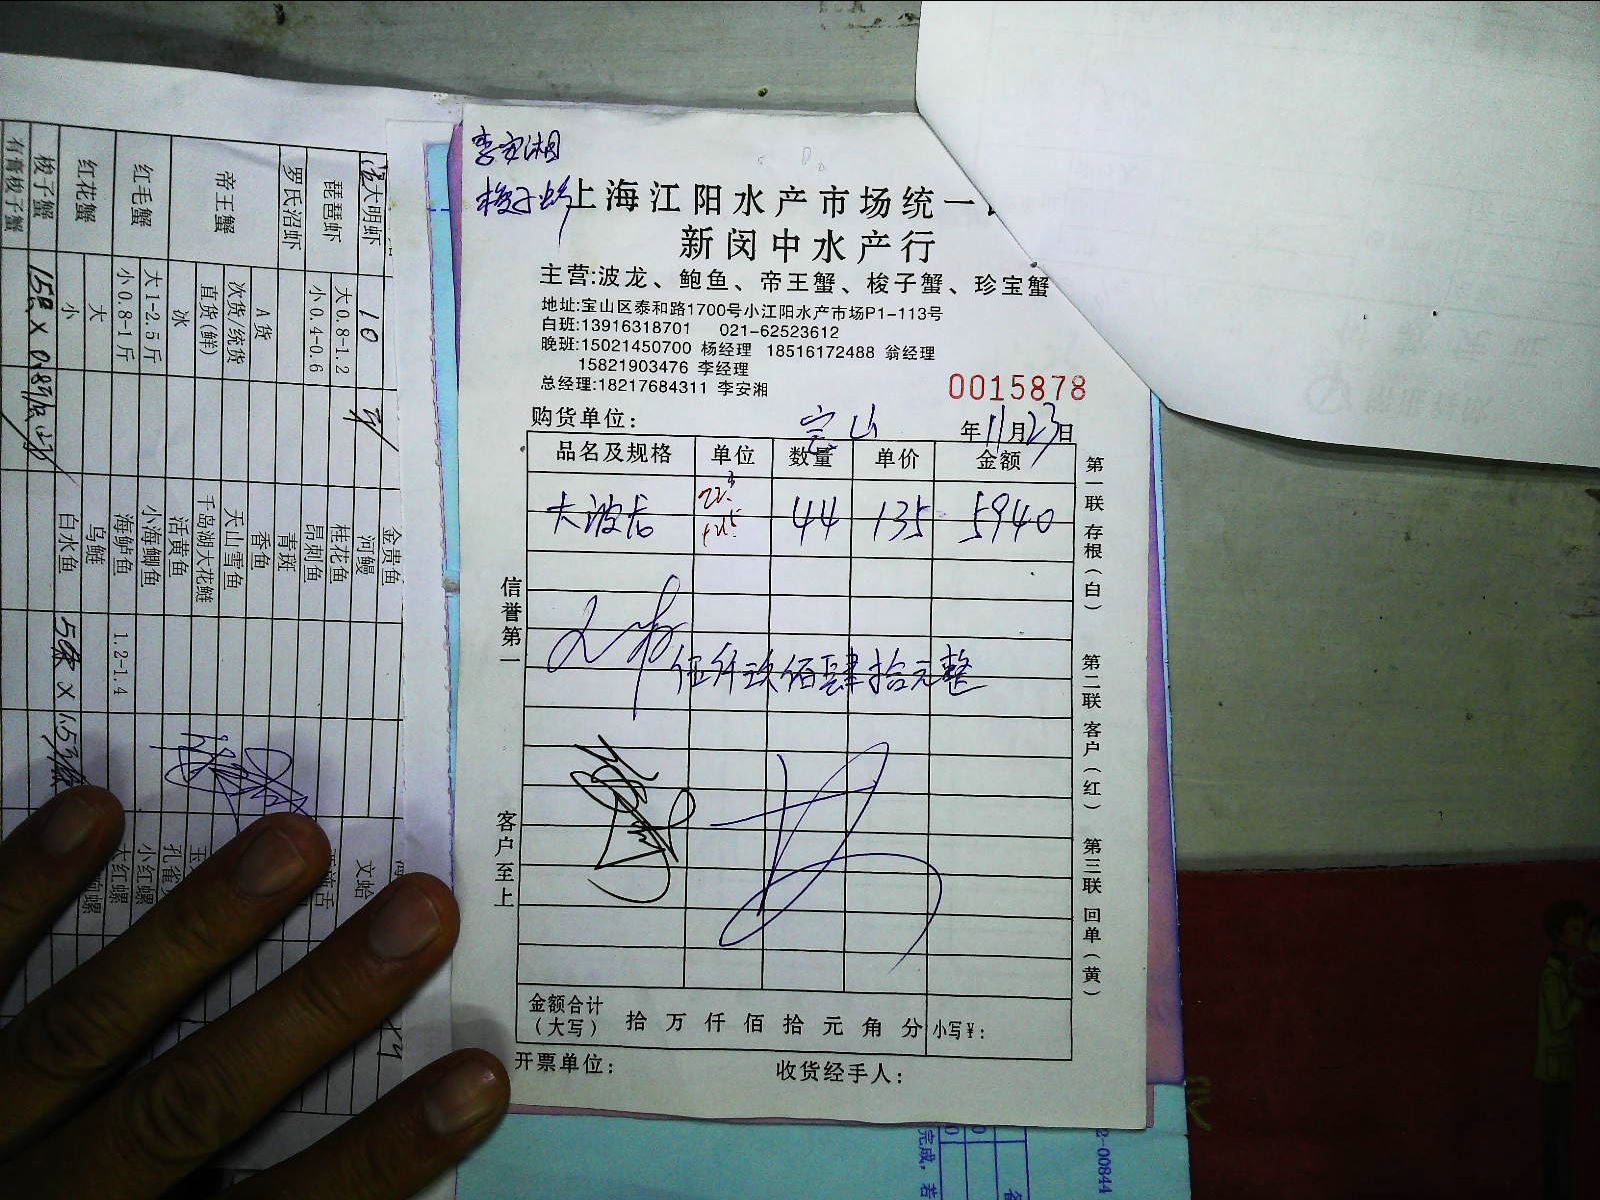 李安湘
梭子蟹
上海江阳水产市场统一
新闵中水产行
主营:波龙、鲍鱼、帝王蟹、梭子蟹、珍宝蟹
地址:宝山区泰和路1700号小江阳水产市场P1-113号
白班:13916318701 021-62523612
晚班:15021450700 杨经理 18516172488 翁经理
15821903476 李经理
总经理:18217684311 李安湘
0015878
购货单位: 宝山 年11月23日
品名及规格 单位 数量 单价 金额
大波龙 44 135 5940
伍仟玖佰肆拾元整
信誉第一
客户至上
第一联 存根(白)
第二联 客户(红)
第三联 回单(黄)
金额合计
(大写) 拾 万 仟 佰 拾 元 角 分 小写¥:
开票单位: 收货经手人:
大明虾 10
琵琶虾 大0.8-1.2
小0.4-0.6
罗氏沼虾
帝王蟹 A货
次货/统货
直货(鲜)
冰
红毛蟹 大1-2.5斤
小0.8-1斤
红花蟹 大
小
梭子蟹
有膏梭子蟹
金贵鱼
河鳗
桂花鱼
昂刺鱼
青斑
香鱼
天山雪鱼
千岛湖大花鲢
活黄鱼
小海鲫鱼
海鲈鱼 1.2-1.4
乌鲢
白水鱼
文蛤
小红螺
大红螺
2-00844
完成,若